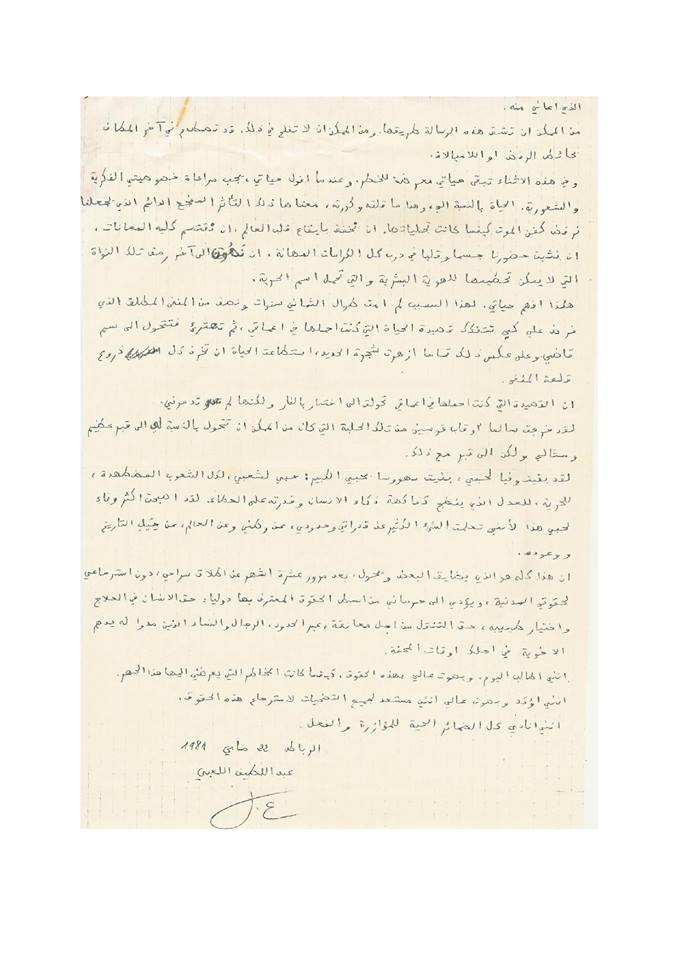 الذي اعاني منه.
من الممكن ان تشق هذه الرسالة طريقها. ومن الممكن ان لا تفلح في ذلك. قد تصطدم في آخر المطاف
بحائط الرفض او اللامبالاة.
وفي هذه الاثناء تبقى حياتي معرضة للخطر. وعندما اقول حياتي، يجب مراعاة خصوصيتي الفكرية
والشعورية. الحياة بالنسبة الي، وهذا ما قلته وكررته، معناها ذلك التأثر الدائم الذي يجعلنا
نرفض كفن الموت كيفما كانت تجلياتها. ان تخفق بايقاع قلب العالم. ان نقتسم كلية المعانات،
ان نثبت حضورنا جسما وقلبا في درب كل الكرامات المهانة. ان الى آخر رمق تلك النواة
التي لا يمكن تحطيمها للهوية البشرية والتي تحمل اسم الحرية.
هكذا افهم حياتي. لهذا السبب لم امت طوال الثماني سنوات ونصف من المنفى المطلق الذي
فرض علي كي تتفكك قصيدة الحياة التي كنت احملها في اعماقي، ثم تهترئ فتتحول الى سم
قاضي. وعلى عكس ذلك تماما ازهرت شجرة الحديد، استطاعة الحياة ان تخرق كل دروع
قلعة المنفى.
ان القصيدة التي كنت احملها في اعماقي تحولة الى اختبار بالنار ولكنها لم تدمرني.
لقد خرجت سالما وقاب قوسين من تلك الحلبة التي كان من الممكن ان تتحول بالنسبة لي الى قبر عظيم
ومثالي ولكن الى قبر مع ذلك.
لقد بقيت وفيا لحبي، بقيت مهووسا بحبي الكبير: حبي لشعبي، لكل الشعوب المضطهدة،
للحرية، للعدل الذي ينضج كفاكهة ذكاء الانسان وقدرته على العطاء. لقد اصبحت اكثر وفاء
لحبي هذا لأنني تعلمت الشيء الكثير عن قدراتي وحدودي، عن وطني وعن العالم، عن حيل التاريخ
ووعوده.
ان هذا كله هو الذي يضايق البعض ويحول، بعد مرور عشرة اشهر عن اطلاق سراحي، دون استرجاعي
لحقوقي المدنية، ويؤدي الى حرماني من ابسط الحقوق المعترف بها دوليا، حق الانسان في العلاج
واختيار طبيبه، حق التنقل من اجل معانقة، عبر الحدود، الرجال والنساء الذين مدوا له يدهم
الاخوية في احلك اوقات المحنة.
انني اطالب اليوم. وبصوت عالي بهذه الحقوق، كيفما كانت المخاطر التي يعرضني اليها هذا الجهر.
انني اؤكد وبصوت عالي انني مستعد لجميع التضحيات لاسترجاع هذه الحقوق.
انني انادي كل الضمائر الحية للمؤازرة والفعل.
الرباط 22 ماي 1981
عبد اللطيف اللعبي
ع.ل